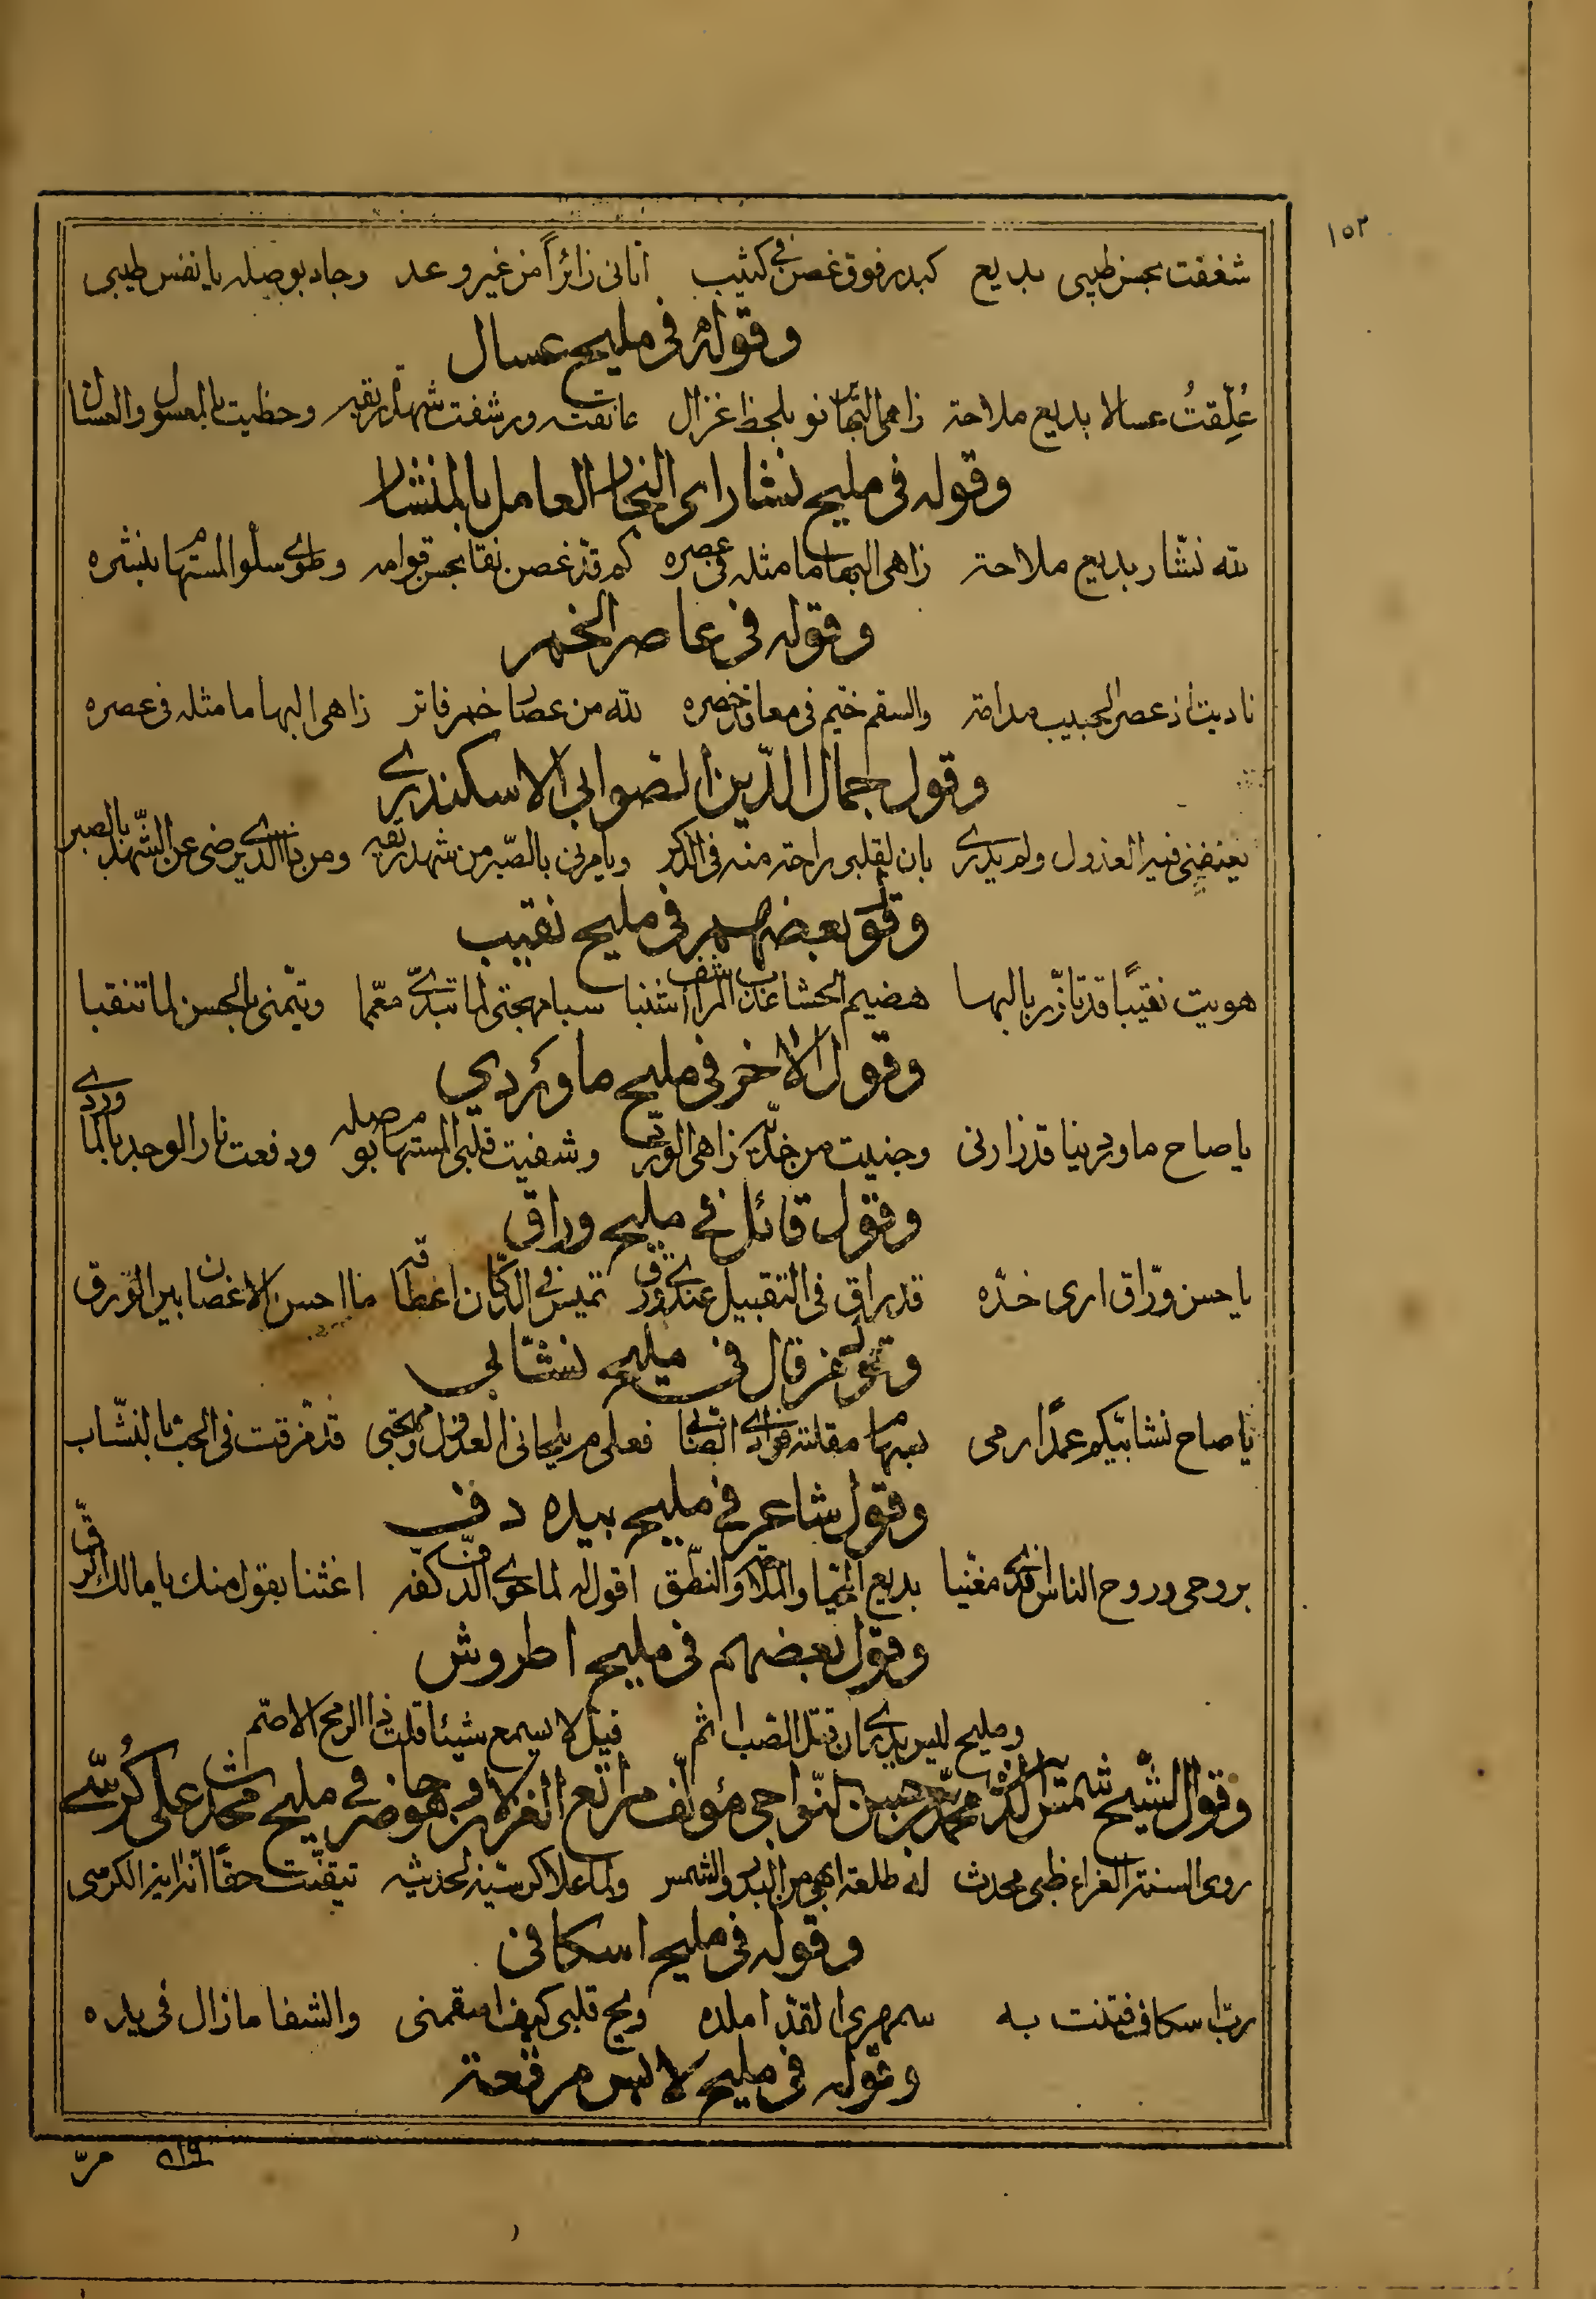 ١٥٢
شغفت بحسن طيبي بديع كبدر فوق غصن في كثيب اتاني زائراً من غير وعد وجاد بوصله يا نفس طيبي
وقوله في مليح عسال
عُلّقتُ عسالا بديع ملاحة زاهي البها يرنو بلحظ غزال عانقته ورشفت شهدة ريقه وحظيت بالمعسول والعسال
وقوله في مليح نشار اي النجار العامل بالمنشار
لله نشار بديع ملاحة زاهي البها ما مثله في عصره كم قد غصن نقا بحسن قوامه وطوى سلو المستهام بنشره
وقوله في عاصر الخمر
ناديت اذ عصر الحبيب مدامة والسقم خيّم في معاقد خصره لله من عصار خمر فاتر زاهي البها ما مثله في عصره
وقول جمال الدّين الصوابي الاسكندري
يعنفني فيه العذول ولم يدري بان لقلبي راحة منه في الذكر ويامرني بالصّبر من شهد ريقه ومن ذا الذي يرضى عن الشّهد بالصبر
وقول بعضهم في مليح نقيب
هويت نقيبًا قد تازّر بالبها هضيم الحشا عذب المراشف اشنبا سبا مهجتي لما تبدّى معمّما ويتّمني بالحسن لما تنقبا
وقول الاخر في مليح ماوردي
يا صاح ماورديا قد زارني وجنيت من خدّيه زاهي الورد وشفيت قلبي المستهام بوصله ودفعت نار الوجد بالماوردي
وقول قائل في مليح وراق
يا حسن ورّاق ارى خدّه قد راق في التقبيل عندي ورق تميس في الدكّان اعطافه ما احسن الاغصان بين الورق
وقول من قال في مليح نشّابي
يا صاح نشابيكم عمدًا رمى بسهام مقلته فؤادي الصابي فعلى م يلحاني العذول ومهجتي قد مزقت في الحب بالنشّاب
وقول شاعر في مليح بيده دف
بروحي وروح الناس افدي مغنيا بديع المحيا والملاحة والنّطق اقول له لما حوى الدفّ كفّه اغثنا بقول منك يا مالك الرقّ
وقول بعضهم في مليح اطروش
ومليح ليس يدري ان قتل الصّب اثم قيل لا يسمع شيئا قلت ذا الرمح الاصمّ
وقول الشّيخ شمس الدّين محمد بن حسن النّواجي مؤلّف مراتع الغزلان وهو في مليح محدث على كُرسيّ
روى السنة الغراء ظبي محدث له طلعة ابهى من البدر والشمس ولما علا كرسيّه لحديثه تيقّنت حقًا انه اية الكرسي
وقوله في مليح اسكافي
ربّ اسكاف فتنت به سمهري القدّ املده ويح قلبي كيف اسقمني والشفا ما زال في يده
وقوله في مليح لابس مرقعة